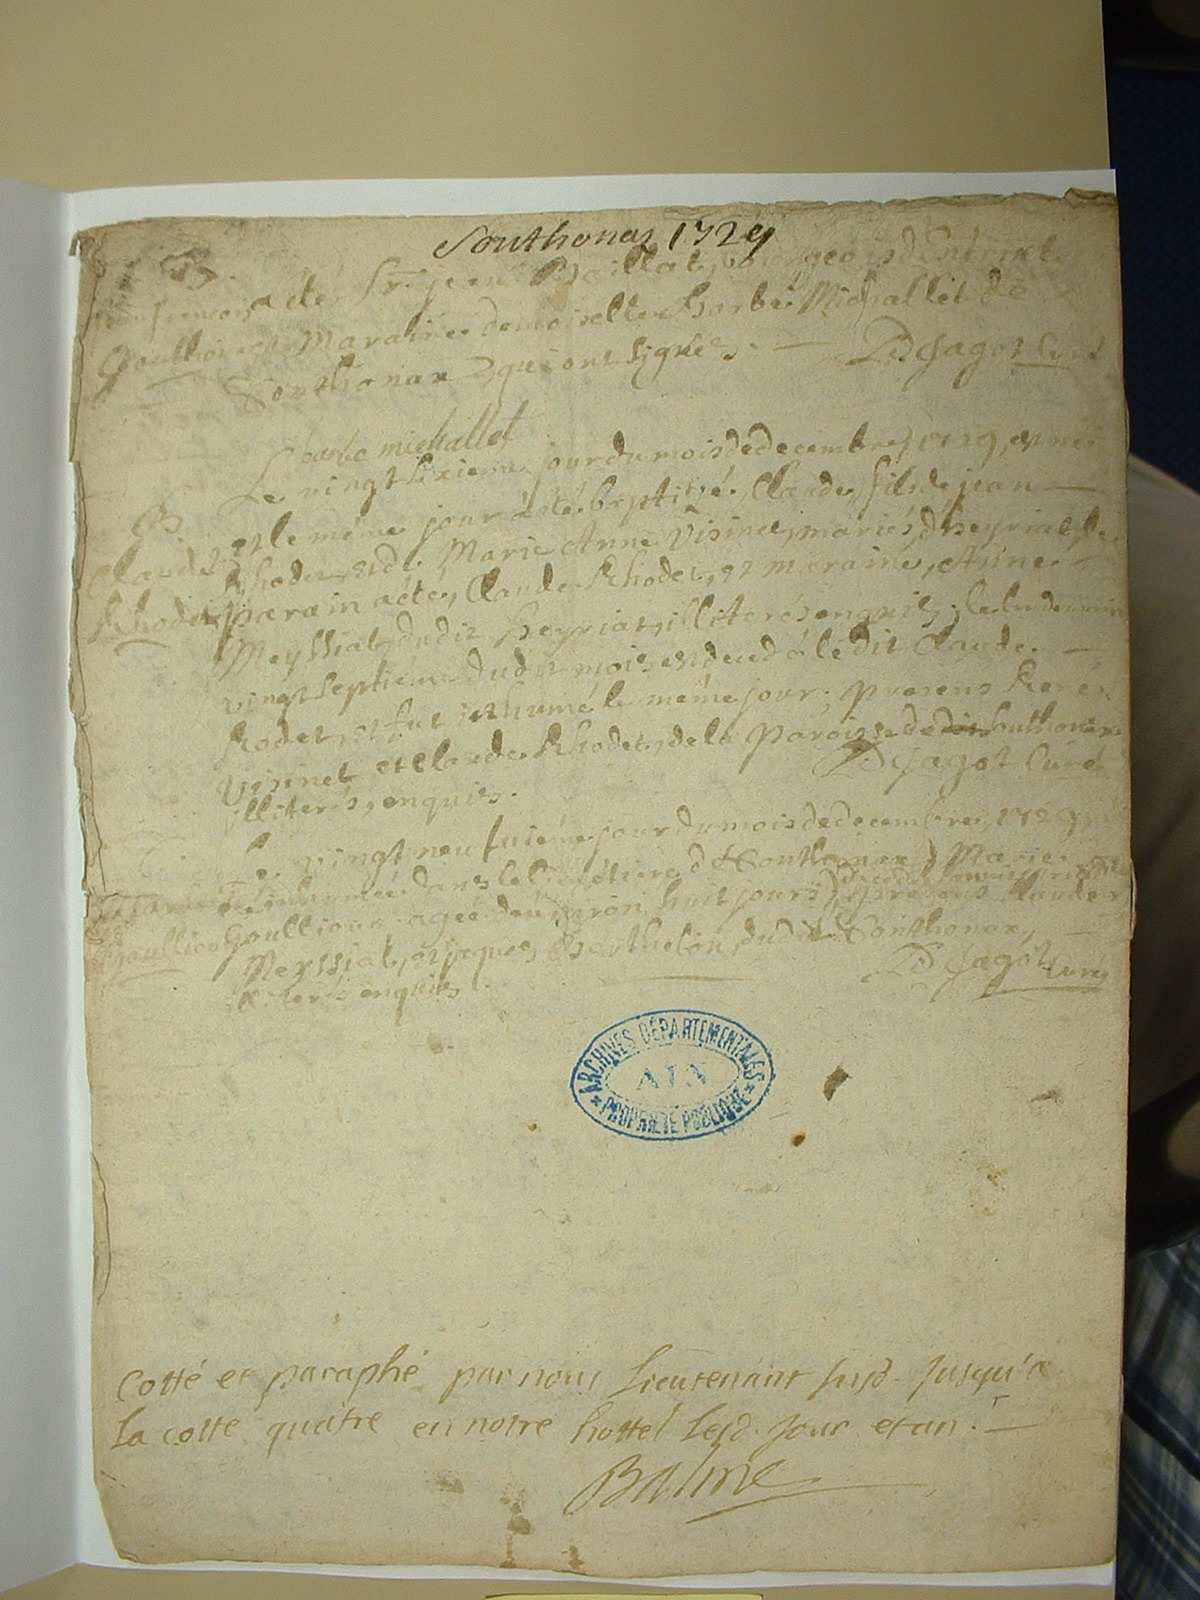 Sonthonax 1729
a été Sr. jean Baillat, bourgeois
Goullion et Maraine demoiselle barbe Michallet de
Sonthonax qui ont signés. P D Jagot Curé
barbe michallet
Le vingt sixieme jour du mois de decembre, 1729, est né
B.
et le même jour a été baptizé, Claude, fils de jean
Claude
Rhodet, et de Marie Anne Visinet, mariés, d'heyriat, le
Rhodet
parain a été, Claude Rhodet, et maraine, Anne
Meyssiat, dudit heyriat, illiterés enquis, le lendemain
vingt septieme dudit mois est decedé le dit Claude
Rodet, et fut inhumé le même jour, presens Rene
Visinet et Claude Rhodet, de la paroisse de Southonax
illiterés, enquis. P D Jagot Curé
Le vingt neufvieme jour du mois de decembre, 1729
inhumée dans le cimetiere de Sonthonax, Marie
Goullion, agée d'environ huit jours, presens Claude
Goullion
Meyssiat, et jaques Berthelon, dudit Sonthonax,
illiterés enquis P D Jagot Curé
ARCHIVES DÉPARTEMENTALES
AIN
* PROPRIÉTÉ PUBLIQUE *
Cotté et paraphé par nous Lieutenant susd. Jusqu'a
La cotte quatre en notre hottel Lesd. Jour et an.
Balme